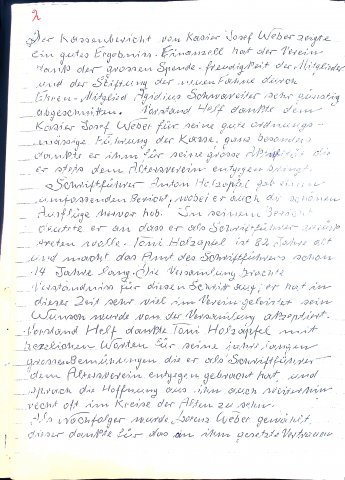 2
Der Kassenbericht von Kasier Josef Weber zeigte
ein gutes Ergebniss. Finanzell hat der Verein
dank der grossen Spende-freudigkeit der Mitglieder
und der Stiftung der neuen Fahne durch
Ehren-Mitglied Ägidius Schwaweiler sehr günstig
abgeschnitten. Vorstand Helf dankte dem
Kasier Josef Weber für seine gute ordnungs-
mässige Führung der Kasse, ganz besonders
dankte er ihm für seine grosse die
er stets dem Altersverein entgegen bringt.
Schriftführer Anton Holzapfel gab einen
umfassenden Bericht, wobei er auch die schönen
Ausflüge hervor hob. In seinem Bericht
deutete er an dass er als Schriftführer zurück
treten wolle. Toni Holzapfel ist 82 Jahre alt
und macht das Amt des Schriftführers schon
14 Jahre lang. Die Versamlung brachte
Verständniss für diesen Schritt auf, er hat in
dieser Zeit sehr viel im Verein geleistet sein
Wunsch wurde von der Versamlung akzeptiert.
Vorstand Helf dankte Toni Holzäpfel mit
herzlichen Worten für seine jahrelangen
grossen Bemühungen die er als Schriftführer
dem Altersverein entgegen gebracht hat, und
sprach die Hoffnung aus ihn auch weiterhin
recht oft im Kreise der Alten zu sehn.
Als Nachfolger wurde Lorenz Weber gewählt,
dieser dankte für das an ihm gesetzte Vertrauen